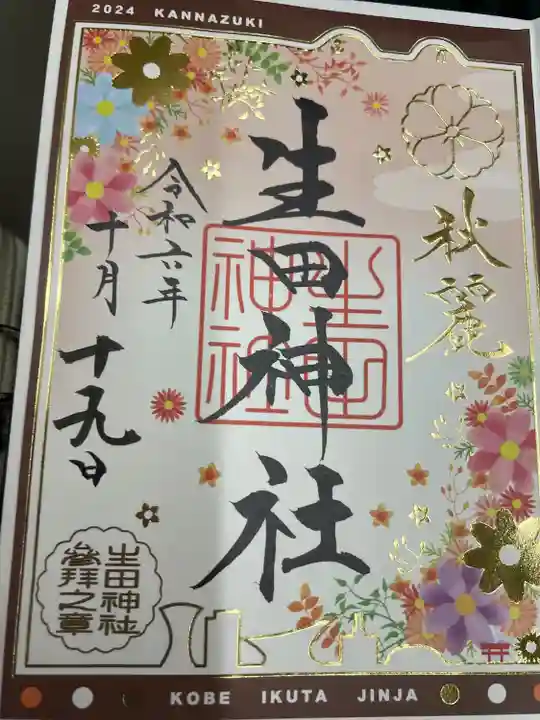 2024 KANNAZUKI
秋麗
生田神社
生田神社
令和六年
十月十九日
生田神社
参拝之章
KOBE IKUTA JINJA